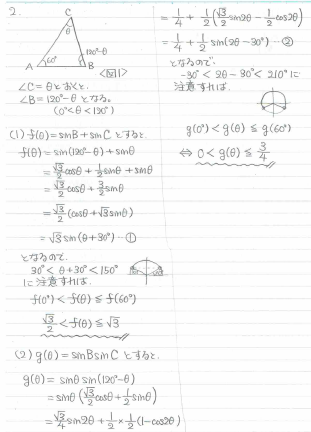 2.
C
θ
A 60° B
120°-θ
<図1>
∠C = θとおくと、
∠B = 120°-θ となる。
(0°<θ<120°)
(1) f(θ) = sinB + sinC とすると、
f(θ) = sin(120°-θ) + sinθ
= √3/2 cosθ + 1/2 sinθ + sinθ
= √3/2 cosθ + 3/2 sinθ
= √3/2 (cosθ + √3 sinθ)
= √3 sin(θ+30°) … ①
となるので、
30° < θ+30° < 150°
に注意すれば、
f(0°) < f(θ) ≦ f(60°)
√3/2 < f(θ) ≦ √3
(2) g(θ) = sinB sinC とすると、
g(θ) = sinθ sin(120°-θ)
= sinθ (√3/2 cosθ + 1/2 sinθ)
= √3/4 sin2θ + 1/2 × 1/2 (1-cos2θ)
= 1/4 + 1/2 (√3/2 sin2θ - 1/2 cos2θ)
= 1/4 + 1/2 sin(2θ-30°) … ②
となるので、
-30° < 2θ-30° < 210° に
注意すれば、
g(0°) < g(θ) ≦ g(60°)
⇔ 0 < g(θ) ≦ 3/4